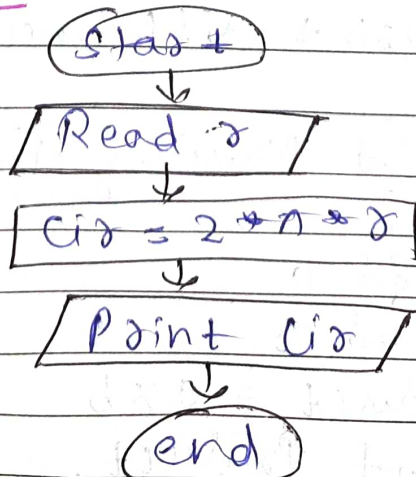 Start
Read r
Cir = 2 * π * r
Print Cir
end